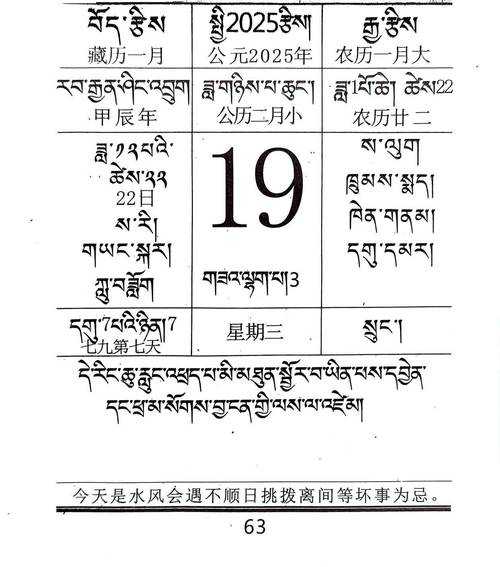 བོད་རྩིས
སྤྱི2025རྩིས།
རྒྱ་རྩིས
藏历一月
公元2025年
农历一月大
རབ་རྒྱན་ཤིང་འབྲུག
ཟླ་གཉིས་པ་ཆུང་།
ཟླ་1པོ་ཆེ། ཚེས22
甲辰年
公历二月小
农历廿二
ཟླ་༡༢པའི་
ཚེས་༢༢
22日
ས་རི།
གཡང་སྐར།
ཀླུ་བཟློག
19
གཟའ་ལྷག་པ།3
ས་ལུག
ཁྲུམས་སྨད།
ཁེན་གནམ།
དགུ་དམར།
དགུ་7པའི་ཉིན།7
七九第七天
星期三
སྲུང་།
དེ་རིང་ཆུ་རླུང་འཕྲད་པ་མི་མཐུན་སྦྱོར་བ་ཡིན་པས་དབྱེན་
དང་ཕྲ་མ་སོགས་བྱ་ངན་གྱི་ལས་ལ་འཛེམ།
今天是水风会遇不顺日挑拨离间等坏事为忌。
63